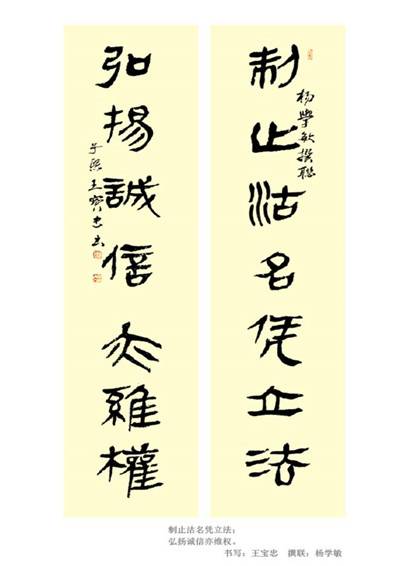 制止沽名凭立法
杨学敏撰联
弘揚誠信亦維權
王寳忠书
制止沽名凭立法；
弘扬诚信亦维权。
书写：王宝忠　撰联：杨学敏